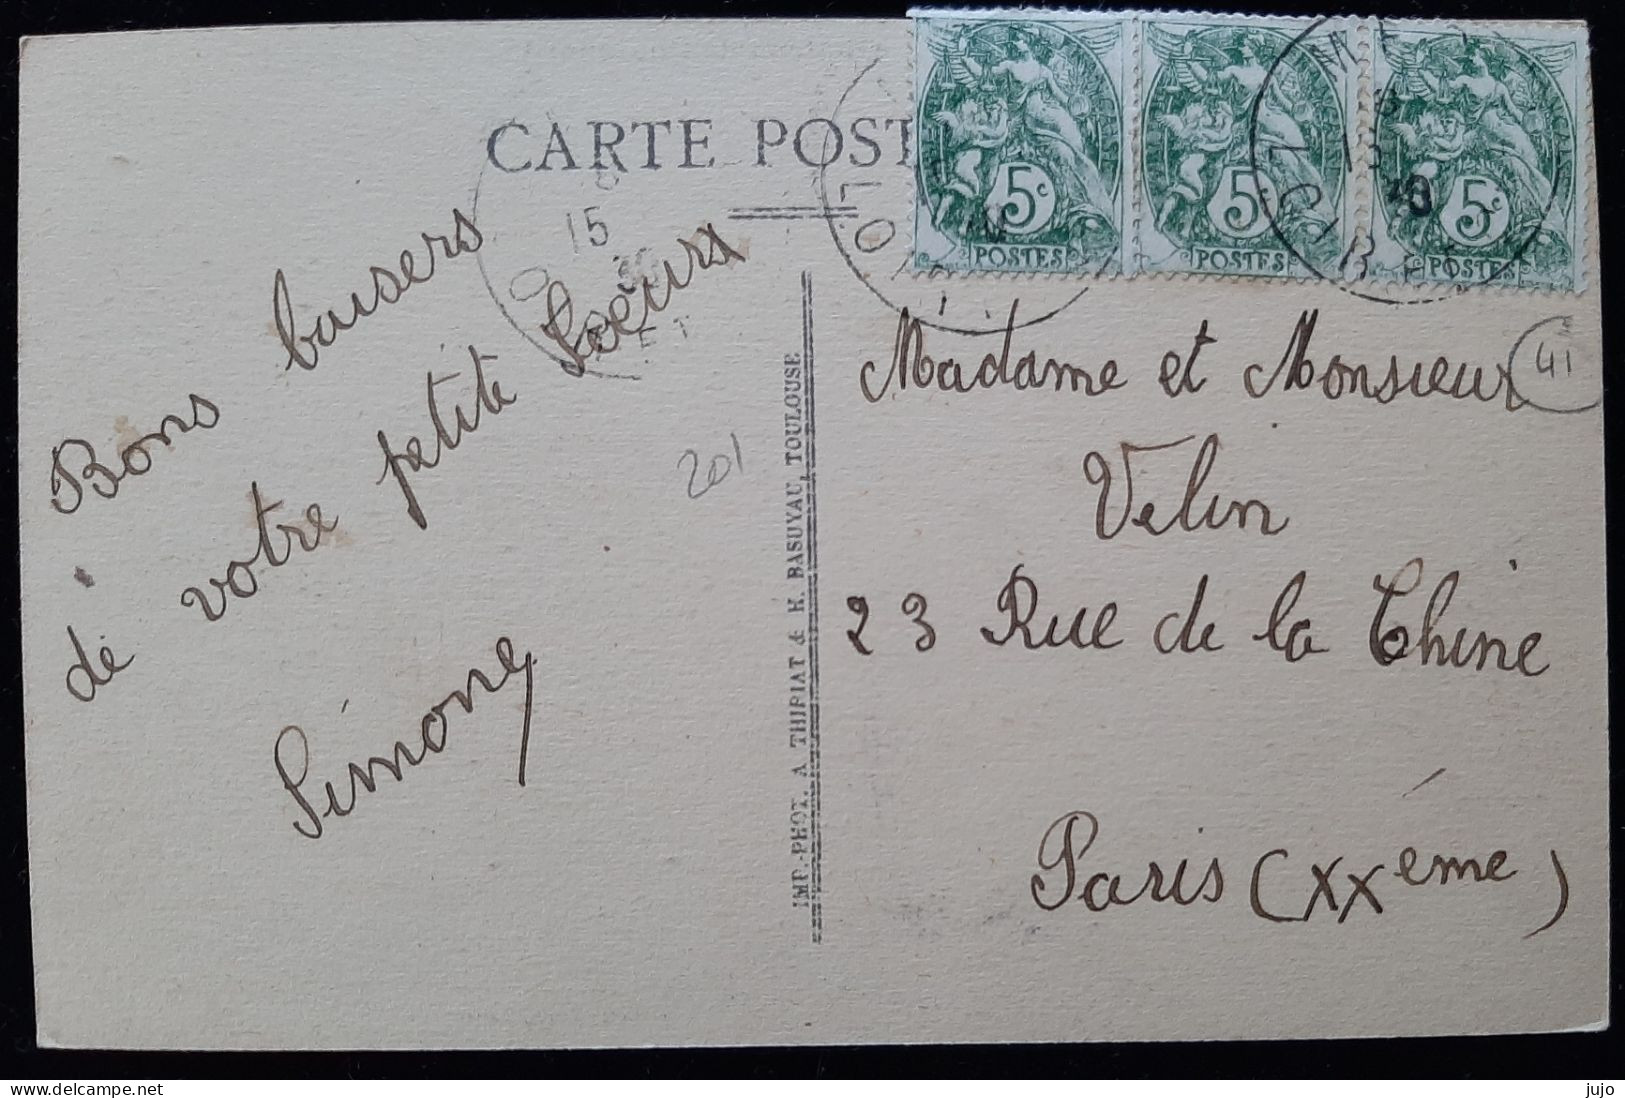 CARTE POST
15
5c
POSTES
5c
POSTES
5c
POSTES
Bons baisers
de votre petite soeur
Simone
201
IMP.-PHOT. A THIRIAT & H. BASUYAU, TOULOUSE
41
Madame et Monsieur
Velin
23 Rue de la Chine
Paris (XXème)
delcampe.net
jujo